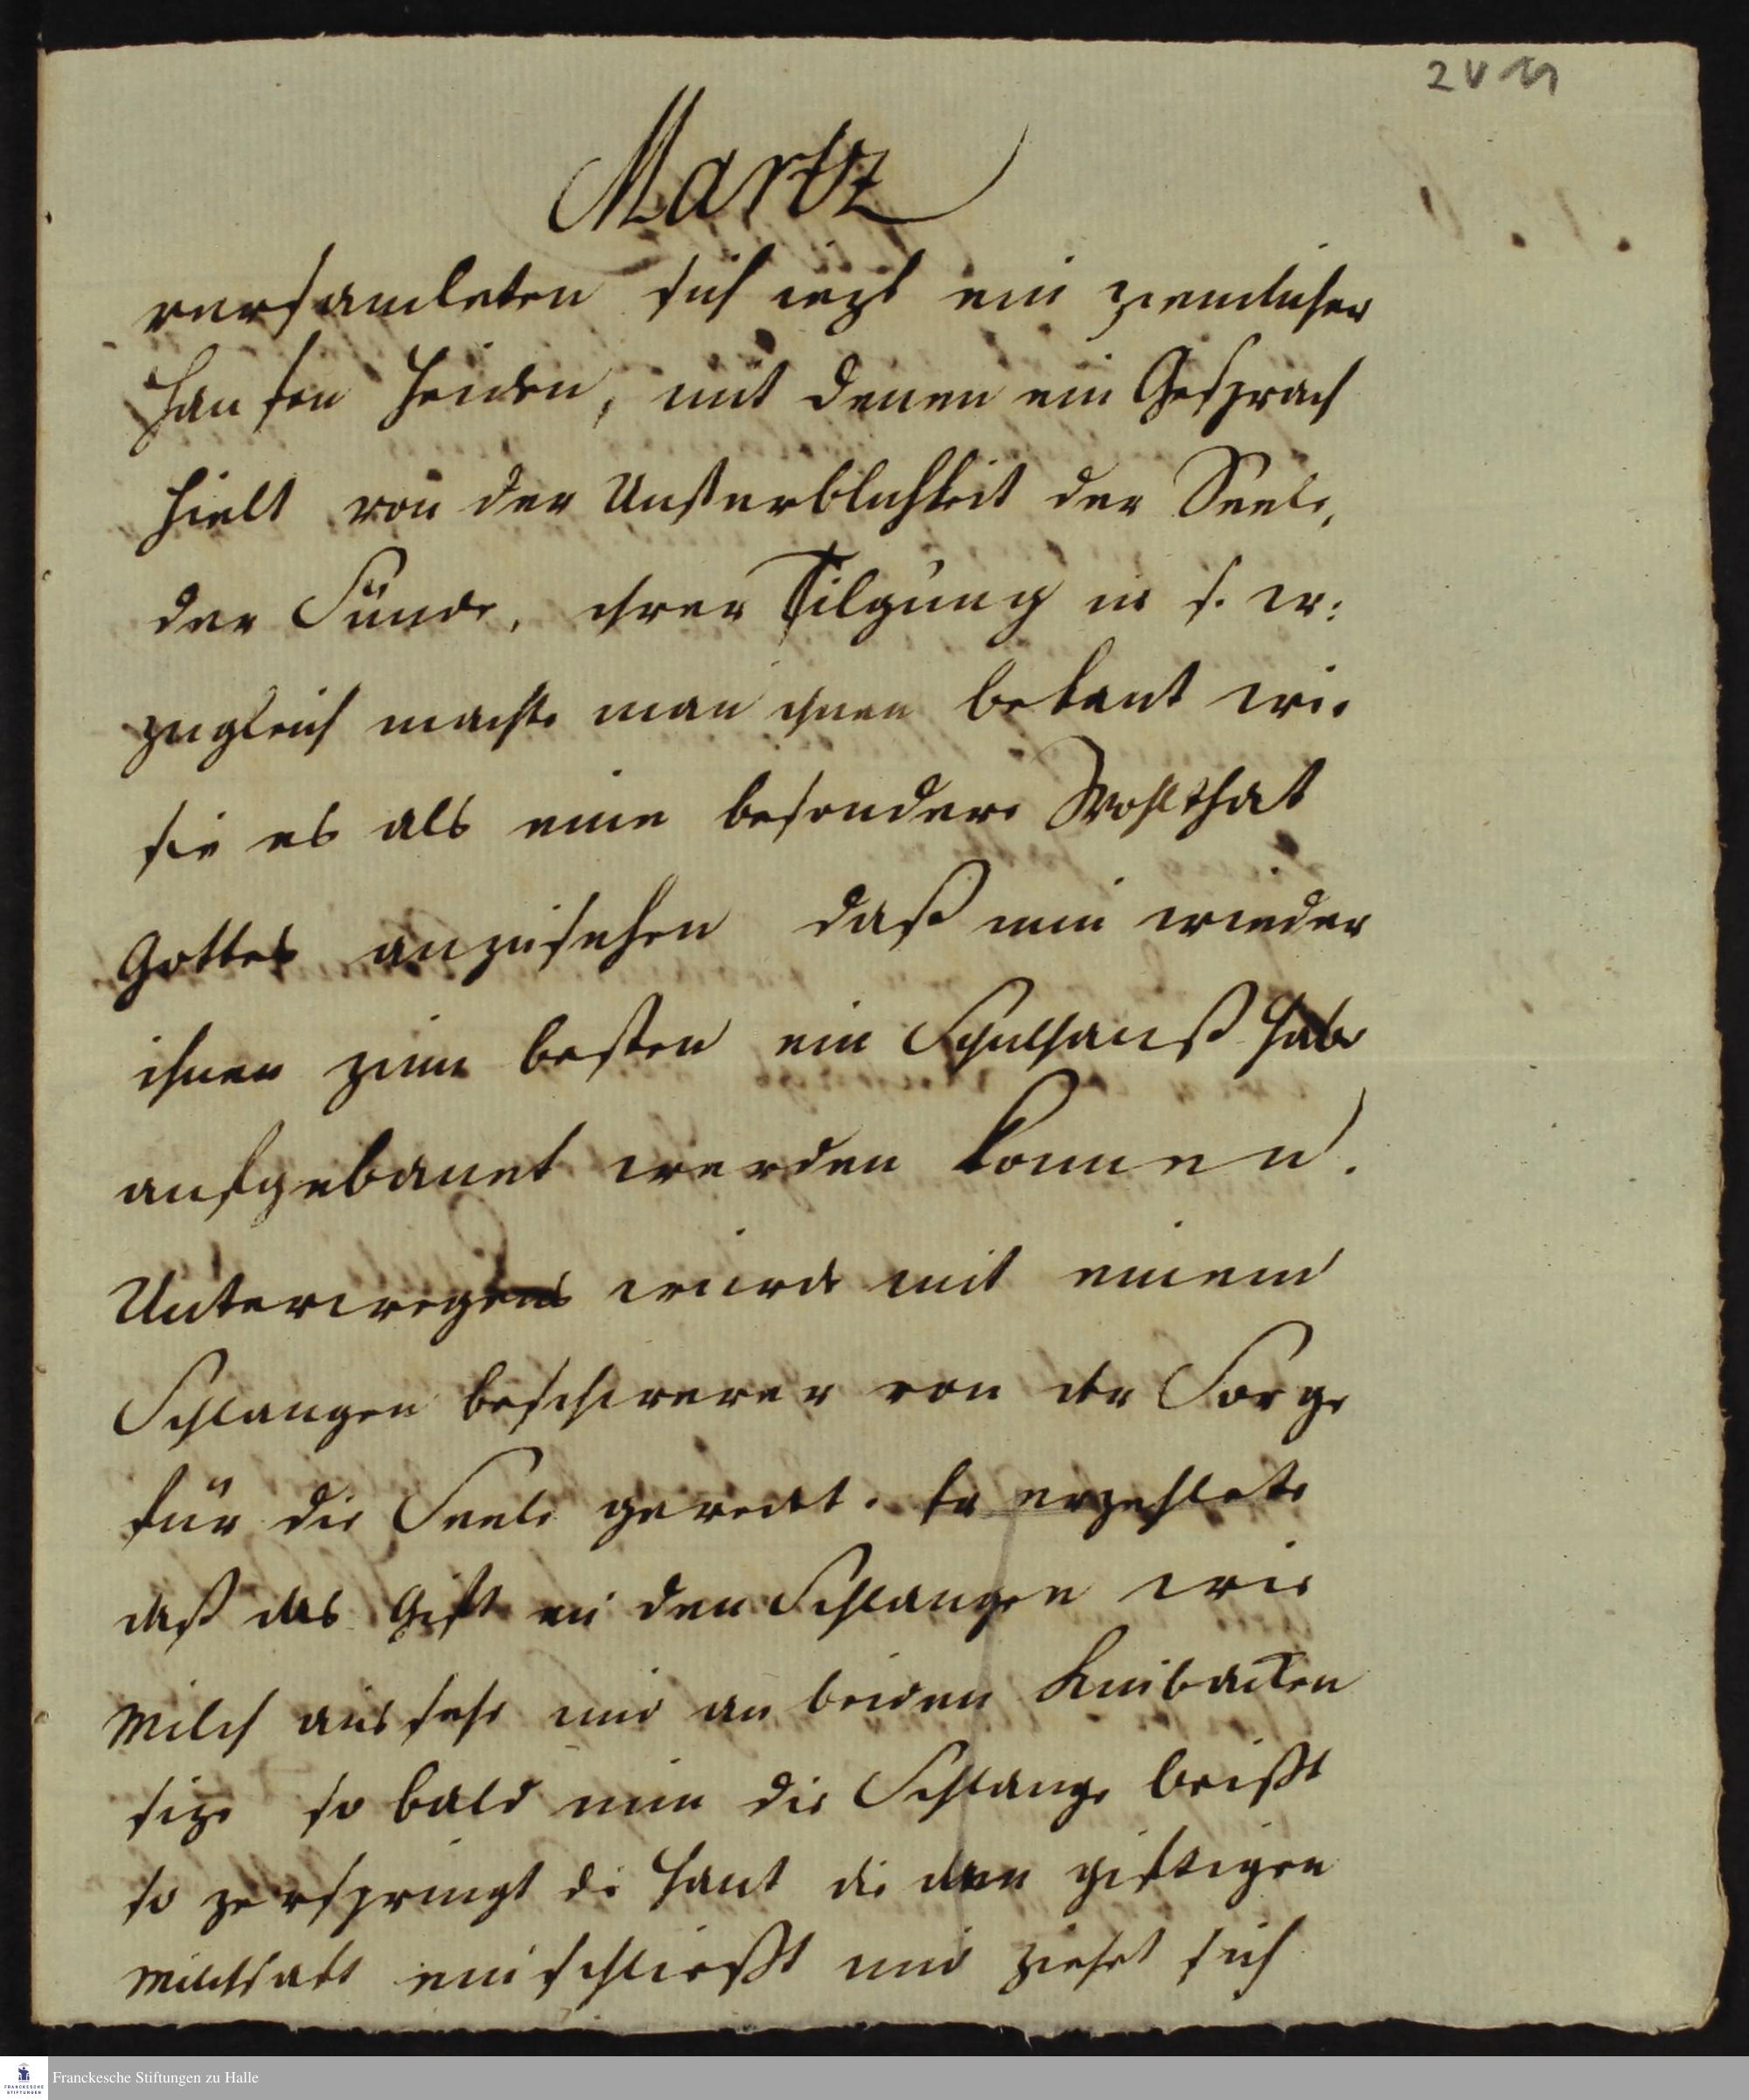 2 V 19
Martz
versamleten sich iezt ein ziemlicher
Haufen Heiden, mit denen ein Gesprach
hielt von der Unsterblichkeit der Seele,
der Sünde, ihrer Tilgung in f. w:
zugleich machte man ihnen bekant wie
sie es als eine besondere Wohlthat
Gottes anzusehen daß nun wieder
ihnen zum besten ein Schulhauß habe
aufgebauet werden konnen.
Unterwegens wurde mit einem
Schlangen beschwerer von der Sorge
für die Seele geredet. Er erzehlete
daß das Gift in den Schlangen wie
Milch aussehe und an beiden Kinbacken
size so bald nun die Schlange beißt
so zerspringt di Haut die den giftigen
Milchsaft einschließt und ziehet sich
Franckesche Stiftungen zu Halle
FRANCKESCHE
STIFTUNGEN